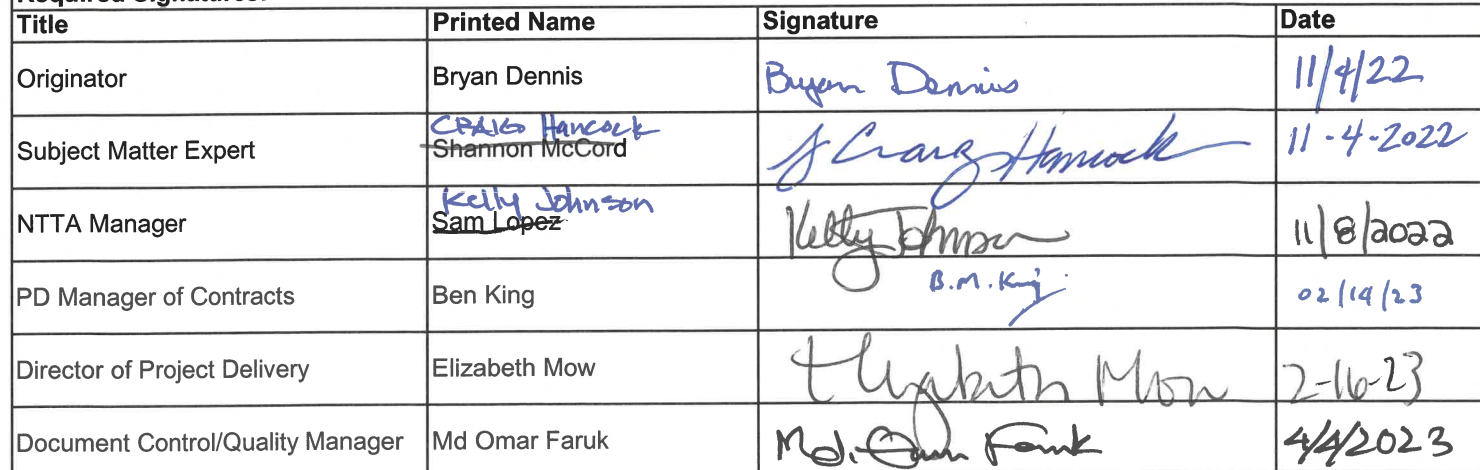 Title Printed Name Signature Date
Originator Bryan Dennis Bryan Dennis 11/4/22
CRAIG Hancock
Subject Matter Expert Shannon McCord J Craig Hancock 11-4-2022
Kelly Johnson
NTTA Manager Sam Lopez Kelly Johnson 11/8/2022
PD Manager of Contracts Ben King B.M. King 02/14/23
Director of Project Delivery Elizabeth Mow Elizabeth Mow 2-16-23
Document Control/Quality Manager Md Omar Faruk Md. Omar Faruk 4/4/2023